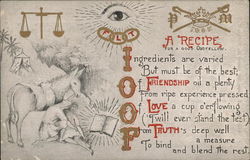 F L T
P M
A RECIPE
FOR A GOOD ODDFELLOW.
I O O F
Ingredients are varied
But must be of the best;
Of FRIENDSHIP oil a plenty
From ripe experience pressed
Of LOVE a cup o'erflowing
(Twill ever stand the test)
From TRUTH'S deep well
a measure
To bind and blend the rest.